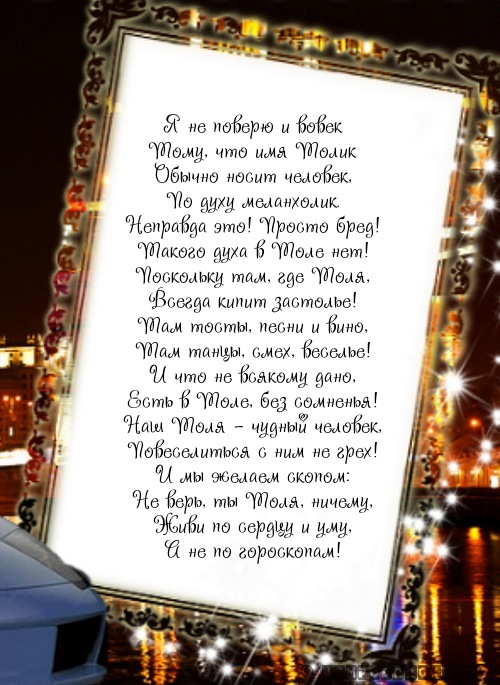 Я не поверю и вовек
Тому, что имя Толик
Обычно носит человек,
По духу меланхолик
Неправда это! Просто бред!
Такого духа в Толе нет!
Поскольку там, где Толя,
Всегда кипит застолье!
Там тосты, песни и вино,
Там танцы, смех, веселье!
И что не всякому дано,
Есть в Толе, без сомненья!
Наш Толя - чудный человек,
Повеселиться с ним не грех!
И мы желаем скопом:
Не верь, ты Толя, ничему,
Живи по сердцу и уму,
А не по гороскопам!